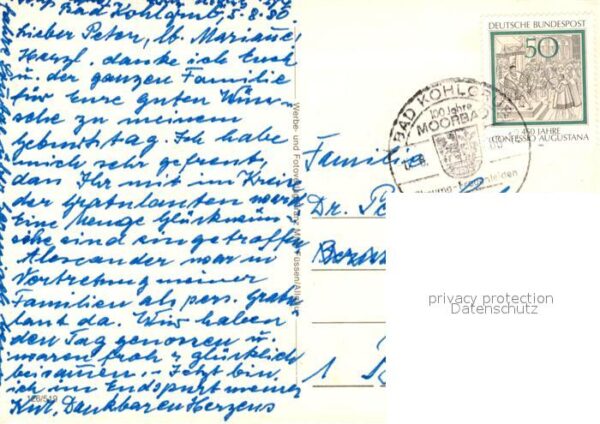 Bad Kohlgrub, 5.8.80
Lieber Peter, lb. Mariannl
Herzl. danke ich Euch
u. der ganzen Familie
für Eure guten Wün-
sche zu meinem
Geburtstag. Ich habe
mich sehr gefreut,
dan Ihr mit im Kreise
der Gratulanten ward
Eine Menge Glückwün-
sche sind eingetroffen
Alexander war in
Vertretung meiner
Familien als pers. Gratu
lant da. Wir haben
den Tag genossen u.
waren froh u glücklich
beisammen. - Jetzt bin
ich im Endspurt meiner
Kur, Dankbaren Herzens
126/519
Werbe- und Fotover
Füssen/Allgäu
DEUTSCHE BUNDESPOST
50
450 JAHRE
CONFESSIO AUGUSTANA
BAD KOHLGRUB
100 Jahre
MOORBAD
Rheuma-Frauenleiden
Familie
Dr. Pe
1
privacy protection
Datenschutz